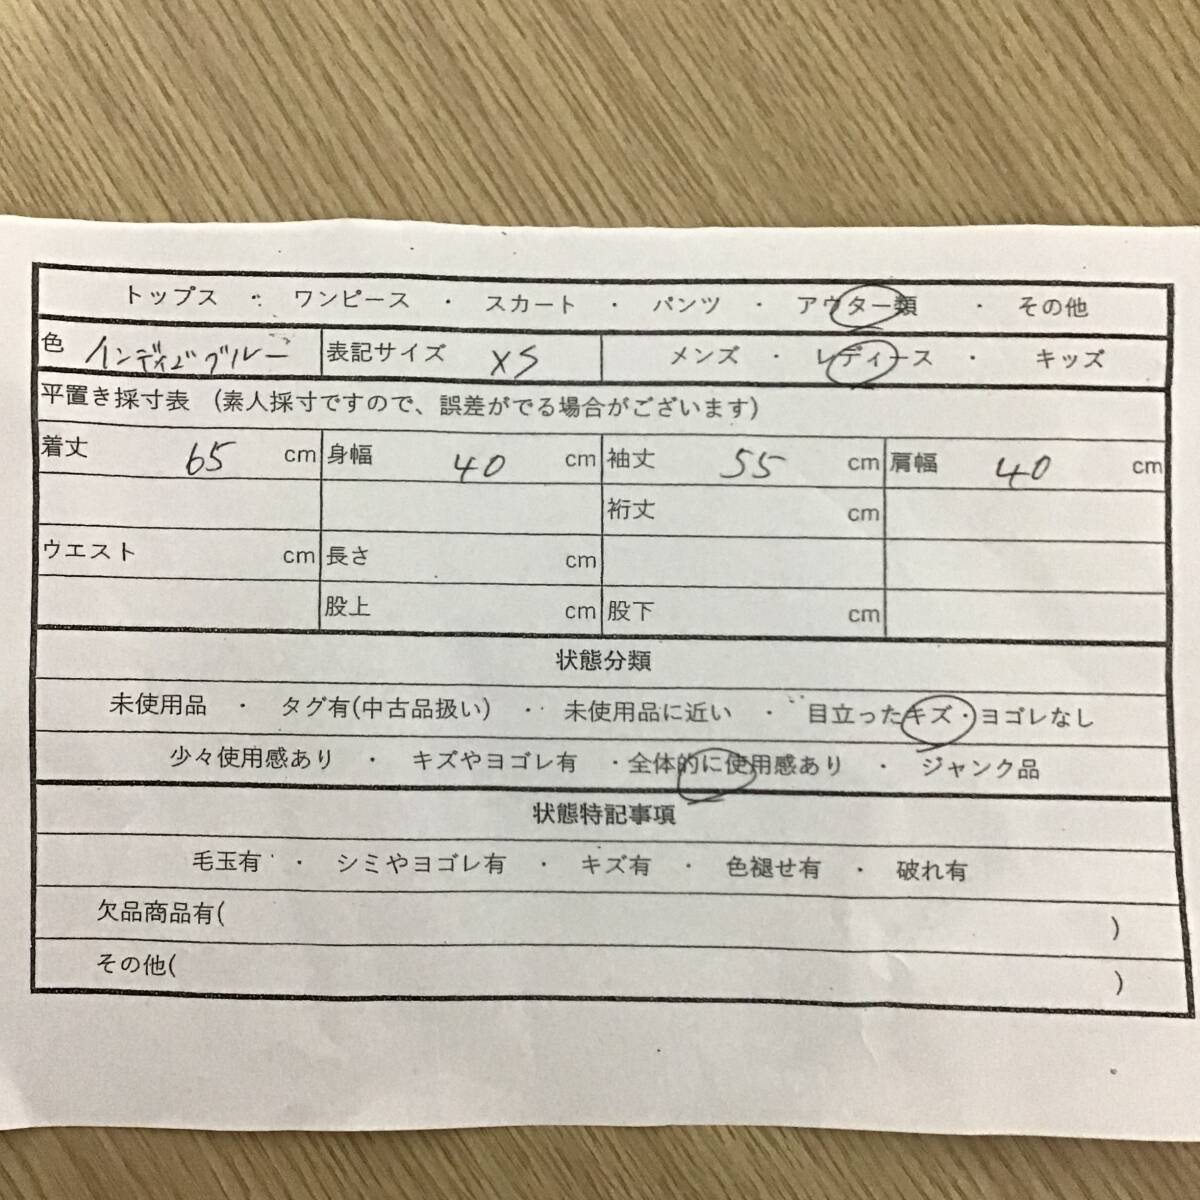 トップス ・ ワンピース ・ スカート ・ パンツ ・ アウター類 ・ その他
色 インディゴブルー 表記サイズ XS メンズ ・ レディース ・ キッズ
平置き採寸表 (素人採寸ですので、誤差がでる場合がございます)
着丈 65 cm 身幅 40 cm 袖丈 55 cm 肩幅 40 cm
裄丈 cm
ウエスト cm 長さ cm
股上 cm 股下 cm
状態分類
未使用品 ・ タグ有(中古品扱い) ・ 未使用品に近い ・ 目立ったキズ・ヨゴレなし
少々使用感あり ・ キズやヨゴレ有 ・全体的に使用感あり ・ ジャンク品
状態特記事項
毛玉有 ・ シミやヨゴレ有 ・ キズ有 ・ 色褪せ有 ・ 破れ有
欠品商品有( )
その他( )